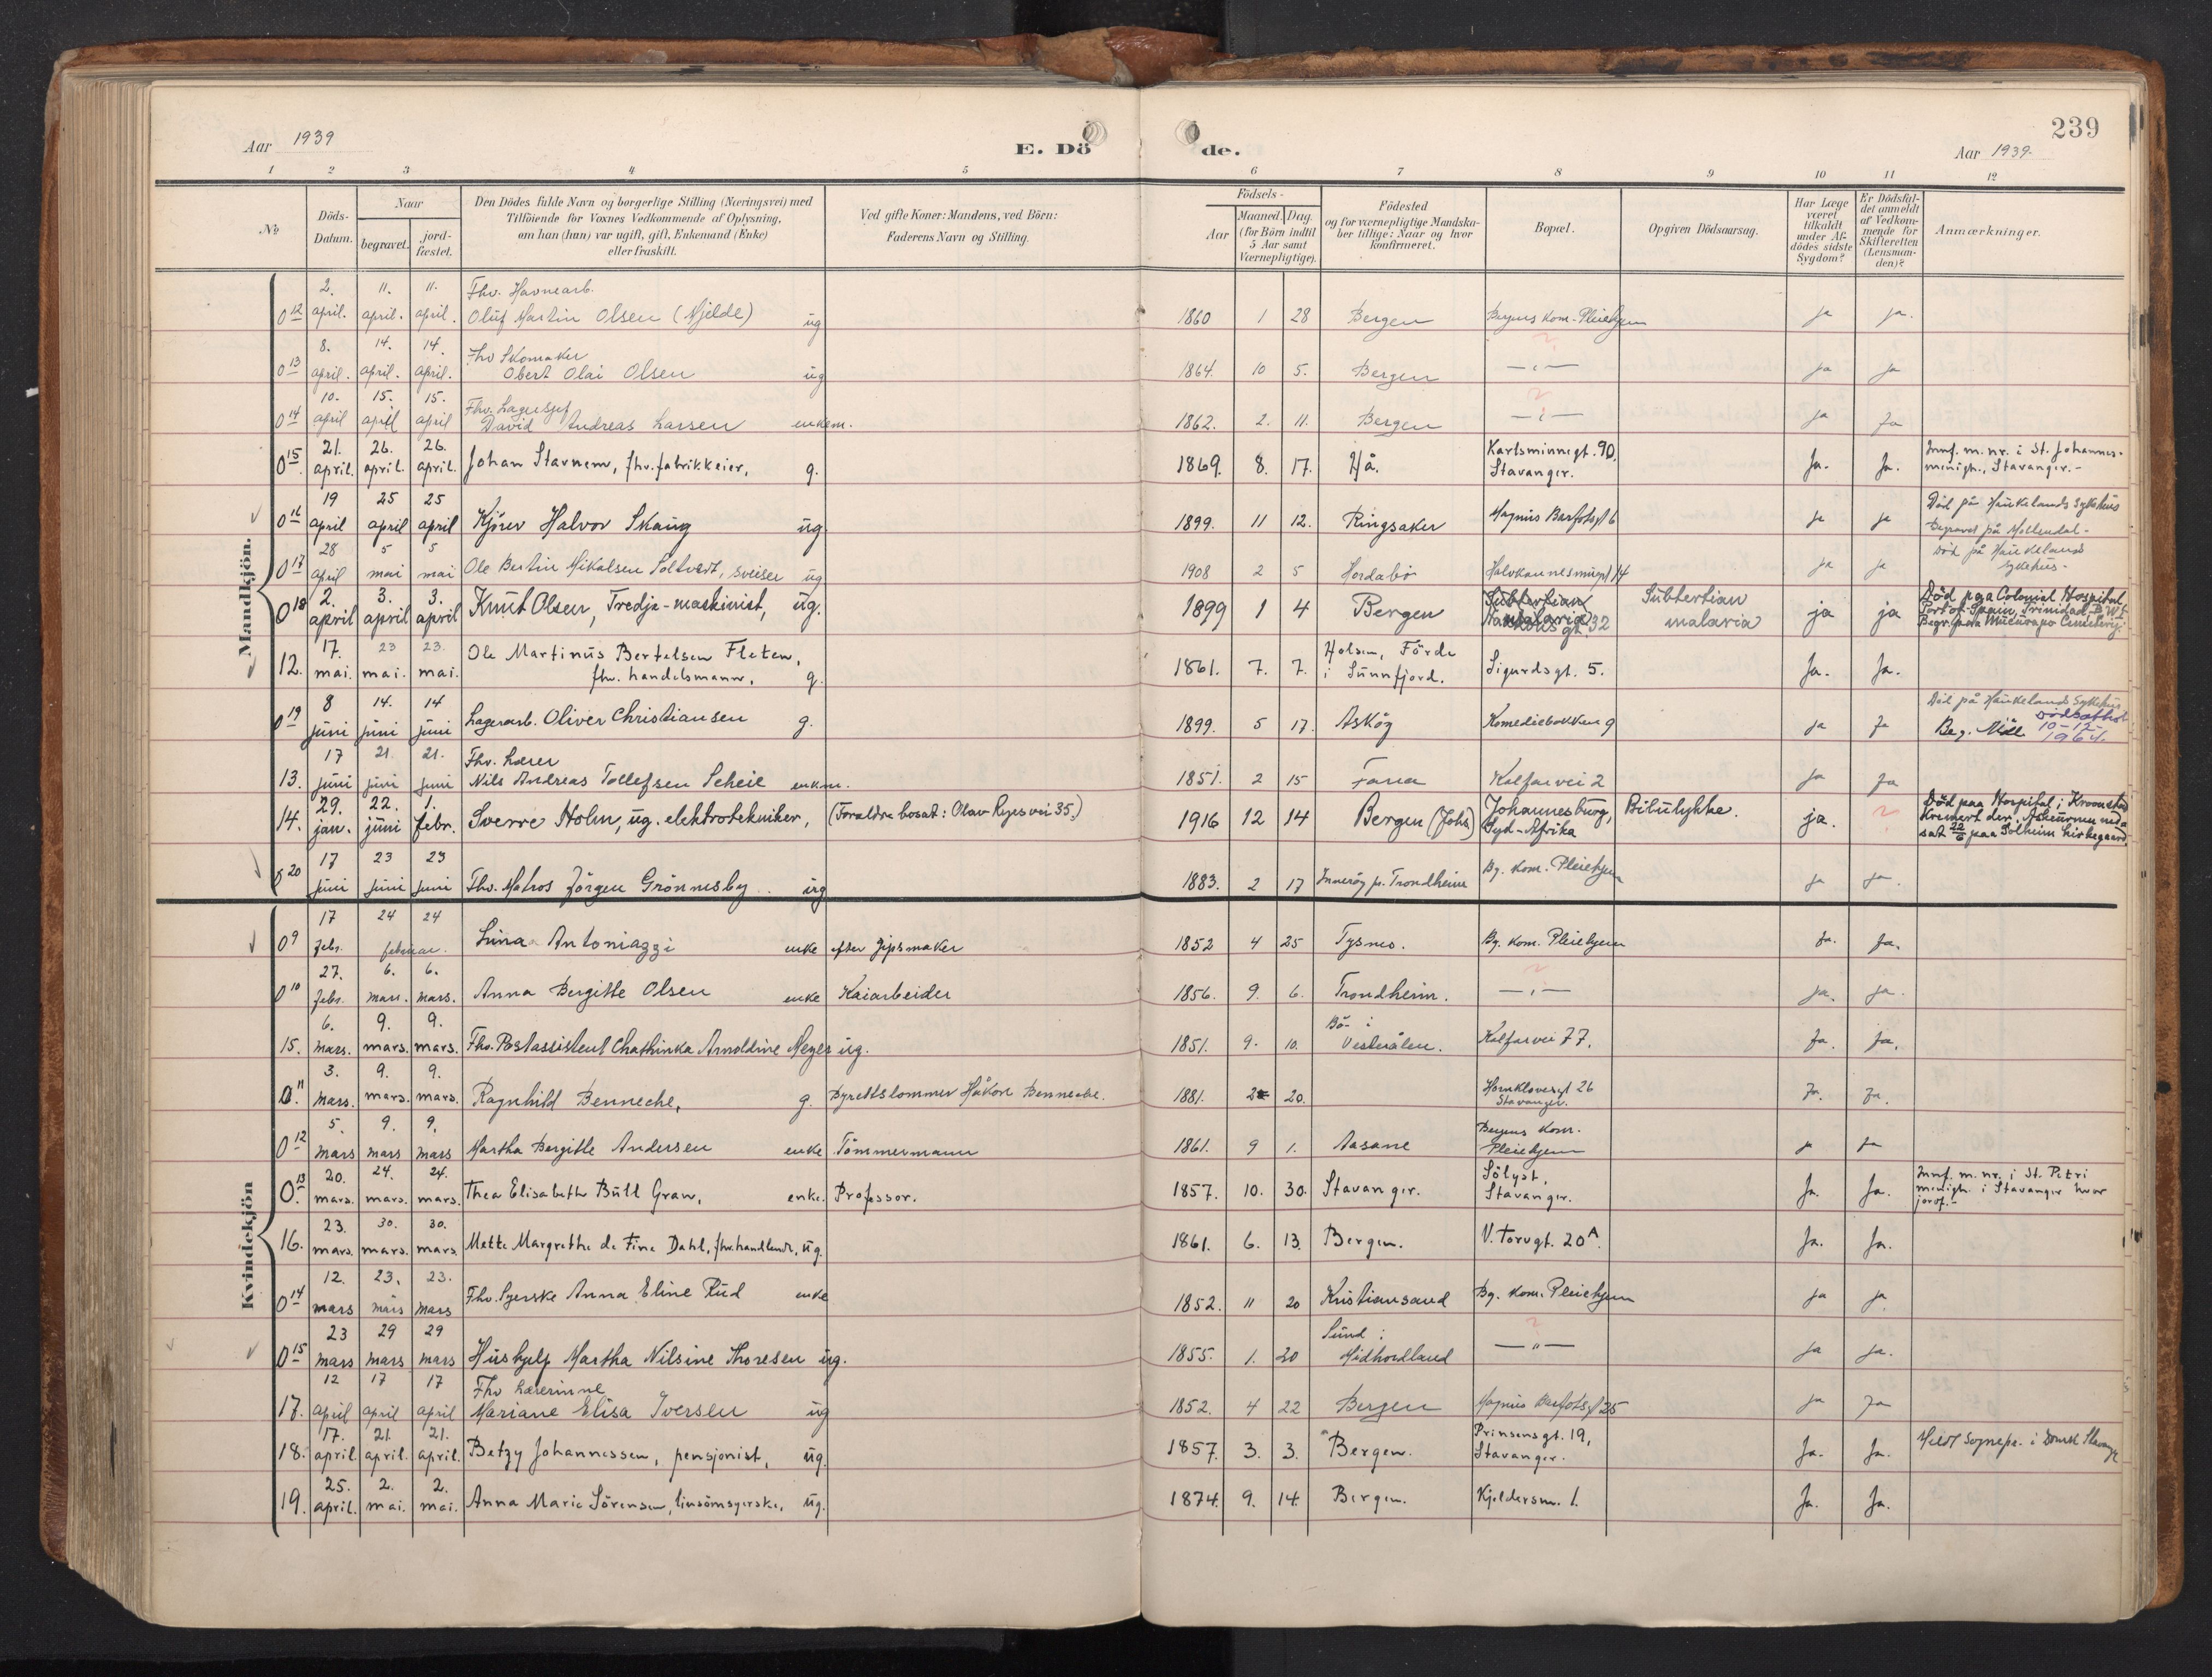 239
Aar 1939
E. Dö de.
Aar 1939.
1 2 3 4 5 6 7 8 9 10 11 12
No
Döds-Datum.
Naar
begravet.
jord-fæstet.
Den Dödes fulde Navn og borgerlige Stilling (Næringsvei) med
Tilföiende for Voxnes Vedkommende af Oplysning,
om han (hun) var ugift, gift, Enkemand (Enke)
eller fraskilt.
Ved gifte Koner: Mandens, ved Börn:
Faderens Navn og Stilling.
Födsels-
Aar
Maaned. Dag.
(for Börn indtil
5 Aar samt
Værnepligtige).
Födested
og for værnepligtige Mandska-
ber tillige: Naar og hvor
konfirmeret.
Bopæl.
Opgiven Dödsaarsag.
Har Læge
været
tilkaldt
under Af-
dödes sidste
Sygdom?
Er Dödsfal-
det anmeldt
af Vedkom-
mende for
Skifteretten
(Lensman-
den)?
Anmærkninger.
Mandkjön.
0 12 2. april. 11. april. 11. april. Fhv. Havnearb. Oluf Martin Olsen (Mjelde) ug 1860 1 28 Bergen Bergens Kom. Pleiehjem ja ja.
0 13 8. april. 14. april. 14. april. Fhv Skomaker Obert Olai Olsen ug 1864. 10 5. Bergen — " — ja ja
0 14 10. april 15. april 15. april Fhv. Lagersjef David Andreas Larsen enkem. 1862. 2. 11. Bergen — " — ja ja
0 15. 21. april. 26. april. 26. april. Johan Stavnem, fhv. fabrikkeier, g. 1869. 8. 17. Hå. Karlsminnegt. 90, Stavanger. Ja. Ja. Innf. m. nr. i St. Johannes-menigh., Stavanger.-
0 16 19 april 25 april 25 april Kjörer Halvor Skaug ug. 1899. 11 12. Ringsaker Magnus Barfotsgt 6 ja ja Död på Haukelands Sykehus Begravet på Möllendal-
0 17 28 april 5 mai 5 mai Ole Bertin Mikalsen Soltvedt, sveiser ug 1908 2 5 Hordabö 14 ja ja Död på Haukelands sykehus-
0 18 2. april 3. april 3. april Knut Olsen, Tredje-maskinist, ug. 1899 1 4 Bergen Subtertian malaria gt 32 Subtertian malaria ja ja Död paa Colonial Hospital, Port of Spain, Trinidad B.W.I. Begr. paa Mucurapo Cemetery.
12. 17. mai. 23 mai. 23. mai. Ole Martinus Bertelsen Fleten, fhv. handelsmann, g. 1861. 7. 7. Holsen, Förde i Sunnfjord. Sigurdsgt. 5. Ja. Ja.
0 19 8 juni 14. juni 14 juni Lagerarb. Oliver Christiansen g. 1899. 5 17. Asköy Komediebakken 9 ja ja Död på Haukelands Sykehus Beg. Möll. dödsattest 10-12-1964.
13. 17 juni 21. juni 21. juni Fhv. Lærer Nils Andreas Tollefsen Scheie enkm. 1851. 2 15 Fana Kalfarvei 2 ja ja
14. 29. jan. 22. juni 1. febr. Sverre Holm, ug. elektrotekniker, (Foreldre bosat: Olav Ryes vei 35.) 1916 12 14 Bergen (Johs) Johannesburg, Syd-Afrika Bilulykke. ja. ? Död paa Hospital i Kroonstad Kremert der. Askeurnen ned-sat 22/6 paa Solheim kirkegaard.
0 20 17 juni 23 juni 23 juni Fhv. Matros Jörgen Grönnesby ug 1883. 2 17 Inneröy pr. Trondheim Bg. Kom. Pleiehjem ja ja.
Kvindekjön
0 9 17 febr. 24 24 februar. Lina Antoniazzi enke efter gipsmaker 1852 4 25 Tysnes. Bg. Kom. Pleiehjem Ja. Ja.
0 10 27. febr. 6. mars. 6. mars. Anna Bergitte Olsen enke Kaiarbeider 1856. 9. 6. Trondheim. — " — ja. ja.
15. 6. mars. 9. mars. 9. mars. Fhv. Postassistent Chathinka Arnoldine Meyer ug. 1851. 9. 10. Bö i Vesterålen. Kalfarvei 77. Ja. Ja.
0 11 3. mars. 9. mars. 9. mars. Ragnhild Benneche, g. Byrettsdommer Håkon Benneche. 1881. 2 20. Hornklovesgt 26 Stavanger. Ja. Ja.
0 12 5. mars 9. mars 9. mars Martha Bergitte Andersen enke Tömmermann 1861. 9 1. Aasane Bergens Kom. Pleiehjem ja ja
0 13 20. mars. 24. mars. 24. mars. Thea Elisabeth Büll Gran, enke. Professor. 1857. 10. 30. Stavanger. Sölyst, Stavanger. Ja. Ja. Innf. m. nr. i St. Petri menigh. i Stavanger hvor jordf.-
16. 23. mars. 30. mars. 30. mars. Mette Margrethe de Fine Dahl, fhv. handlende, ug. 1861. 6. 13. Bergen. V. Torvgt. 20 A. Ja. Ja.
0 14 12. mars 23. mars 23. mars Fhv. Syerske Anna Eline Rud enke 1852. 11 20 Kristiansand Bg. Kom. Pleiehjem ja ja.
0 15 23 mars 29 mars 29 mars Hushjelp Martha Nilsine Thoresen ug. 1855. 1. 20 Sund i Midhordland — " — ja ja.
17. 12 april 17 april 17 april Fhv Lærerinne Mariane Elisa Iversen ug 1852. 4 22 Bergen Magnus Barfotsgt 25 ja ja
18. 17. april. 21. april. 21. april. Betzy Johannessen, pensjonist, ug. 1857. 3. 3. Bergen. Prinsensgt. 19, Stavanger. Ja. Ja. Meldt Sognepr. i Domk Stavanger
19. 25. april. 2. mai. 2. mai. Anna Marie Sörensen, linsömsyerske, ug. 1874. 9. 14. Bergen. Kjeldersm. 1. Ja. Ja.